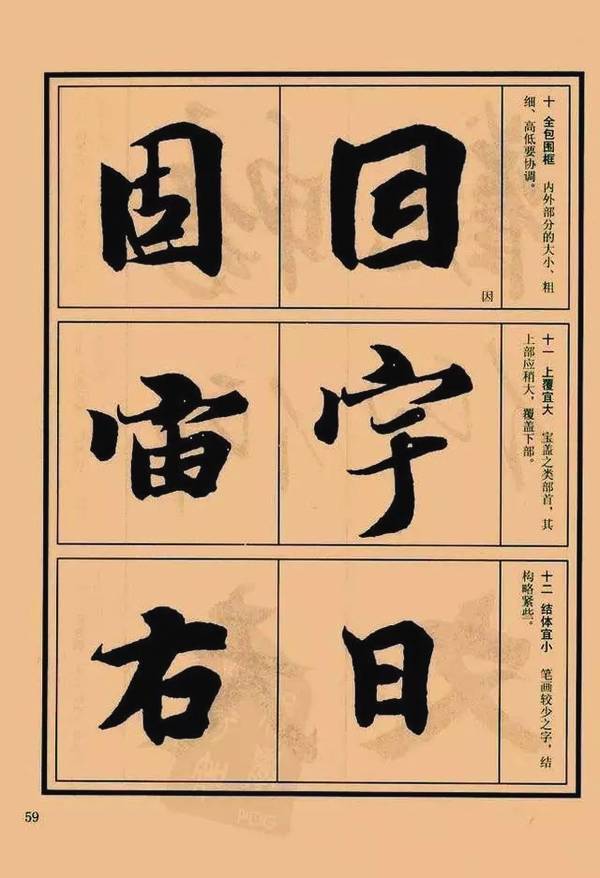 十 全包围框 内外部分的大小、粗
细、高低要协调。
囙
因
固
十一 上覆宜大 宝盖之类部首，其
上部应稍大，覆盖下部。
宇
宙
十二 结体宜小 笔画较少之字，结
构略紧些。
日
右
59
PDG